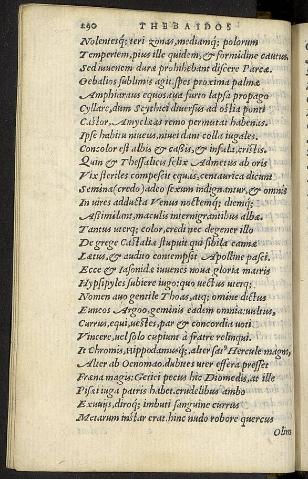 190 THEBAIDOS
Nolentesq; teri zonas, mediamq; polorum
Temperiem, pius ille quidem, & formidine cautus,
Sed iuuenem duræ prohibebant discere Parcæ.
Oebalios sublimis agit, spes proxima palmæ
Amphiaraus equos, tua furto lapsa propago
Cyllare, dum Scythici diuersus ad ostia ponti
Castor, Amyclæas remo permutat habenas.
Ipse habitu niueus, niuei dant colla iugales.
Concolor est albis & cassis, & infula, cristis.
Quin & Thessalicis felix Admetus ab oris
Vix steriles compescit equas, centaurica dicunt
Semina (credo) adeo sexum indignantur, & omnis
In uires adducta Venus noctemq; diemq;
Assimilant, maculis internigrantibus albæ.
Tantus uterq; color, credi nec degener illo
De grege Castaliæ stupuit qui sibila cannæ
Lætus, & audito contempsit Apolline pasci.
Ecce & Iasonidæ iuuenes noua gloria matris
Hypsipyles subiere iugo: quo uectus uterq;
Nomen auo gentile Thoas, atq; omine dictus
Euneos Argoo, geminis eadem omnia: uultus,
Currus, equi, uestes, par & concordia uoti
Vincere, uel solo cupiunt à fratre relinqui.
It Chromis, Hippodamusq;, alter satus Hercule magno,
Alter ab Oenomao. dubites uter effera presset
Fræna magis: Getici pecus hic Diomedis, at ille
Pisæi iuga patris habet. crudelibus ambo
Exuuijs, diroq; imbuti sanguine currus
Metarum instar erat. hinc nudo robore quercus
Olim